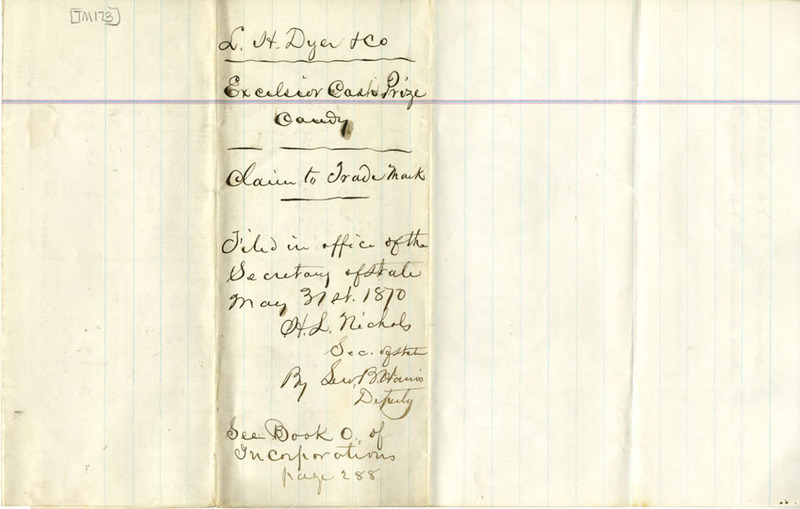 [TM173]
L. H. Dyer & Co
Excelsior Cash Prize
Candy
Claim to Trade Mark
Filed in office of the
Secretary of State
May 31st. 1870
H. L. Nichols
Sec. of State
By Lew B Harris
Deputy
See Book O. of
Incorporations
page 288